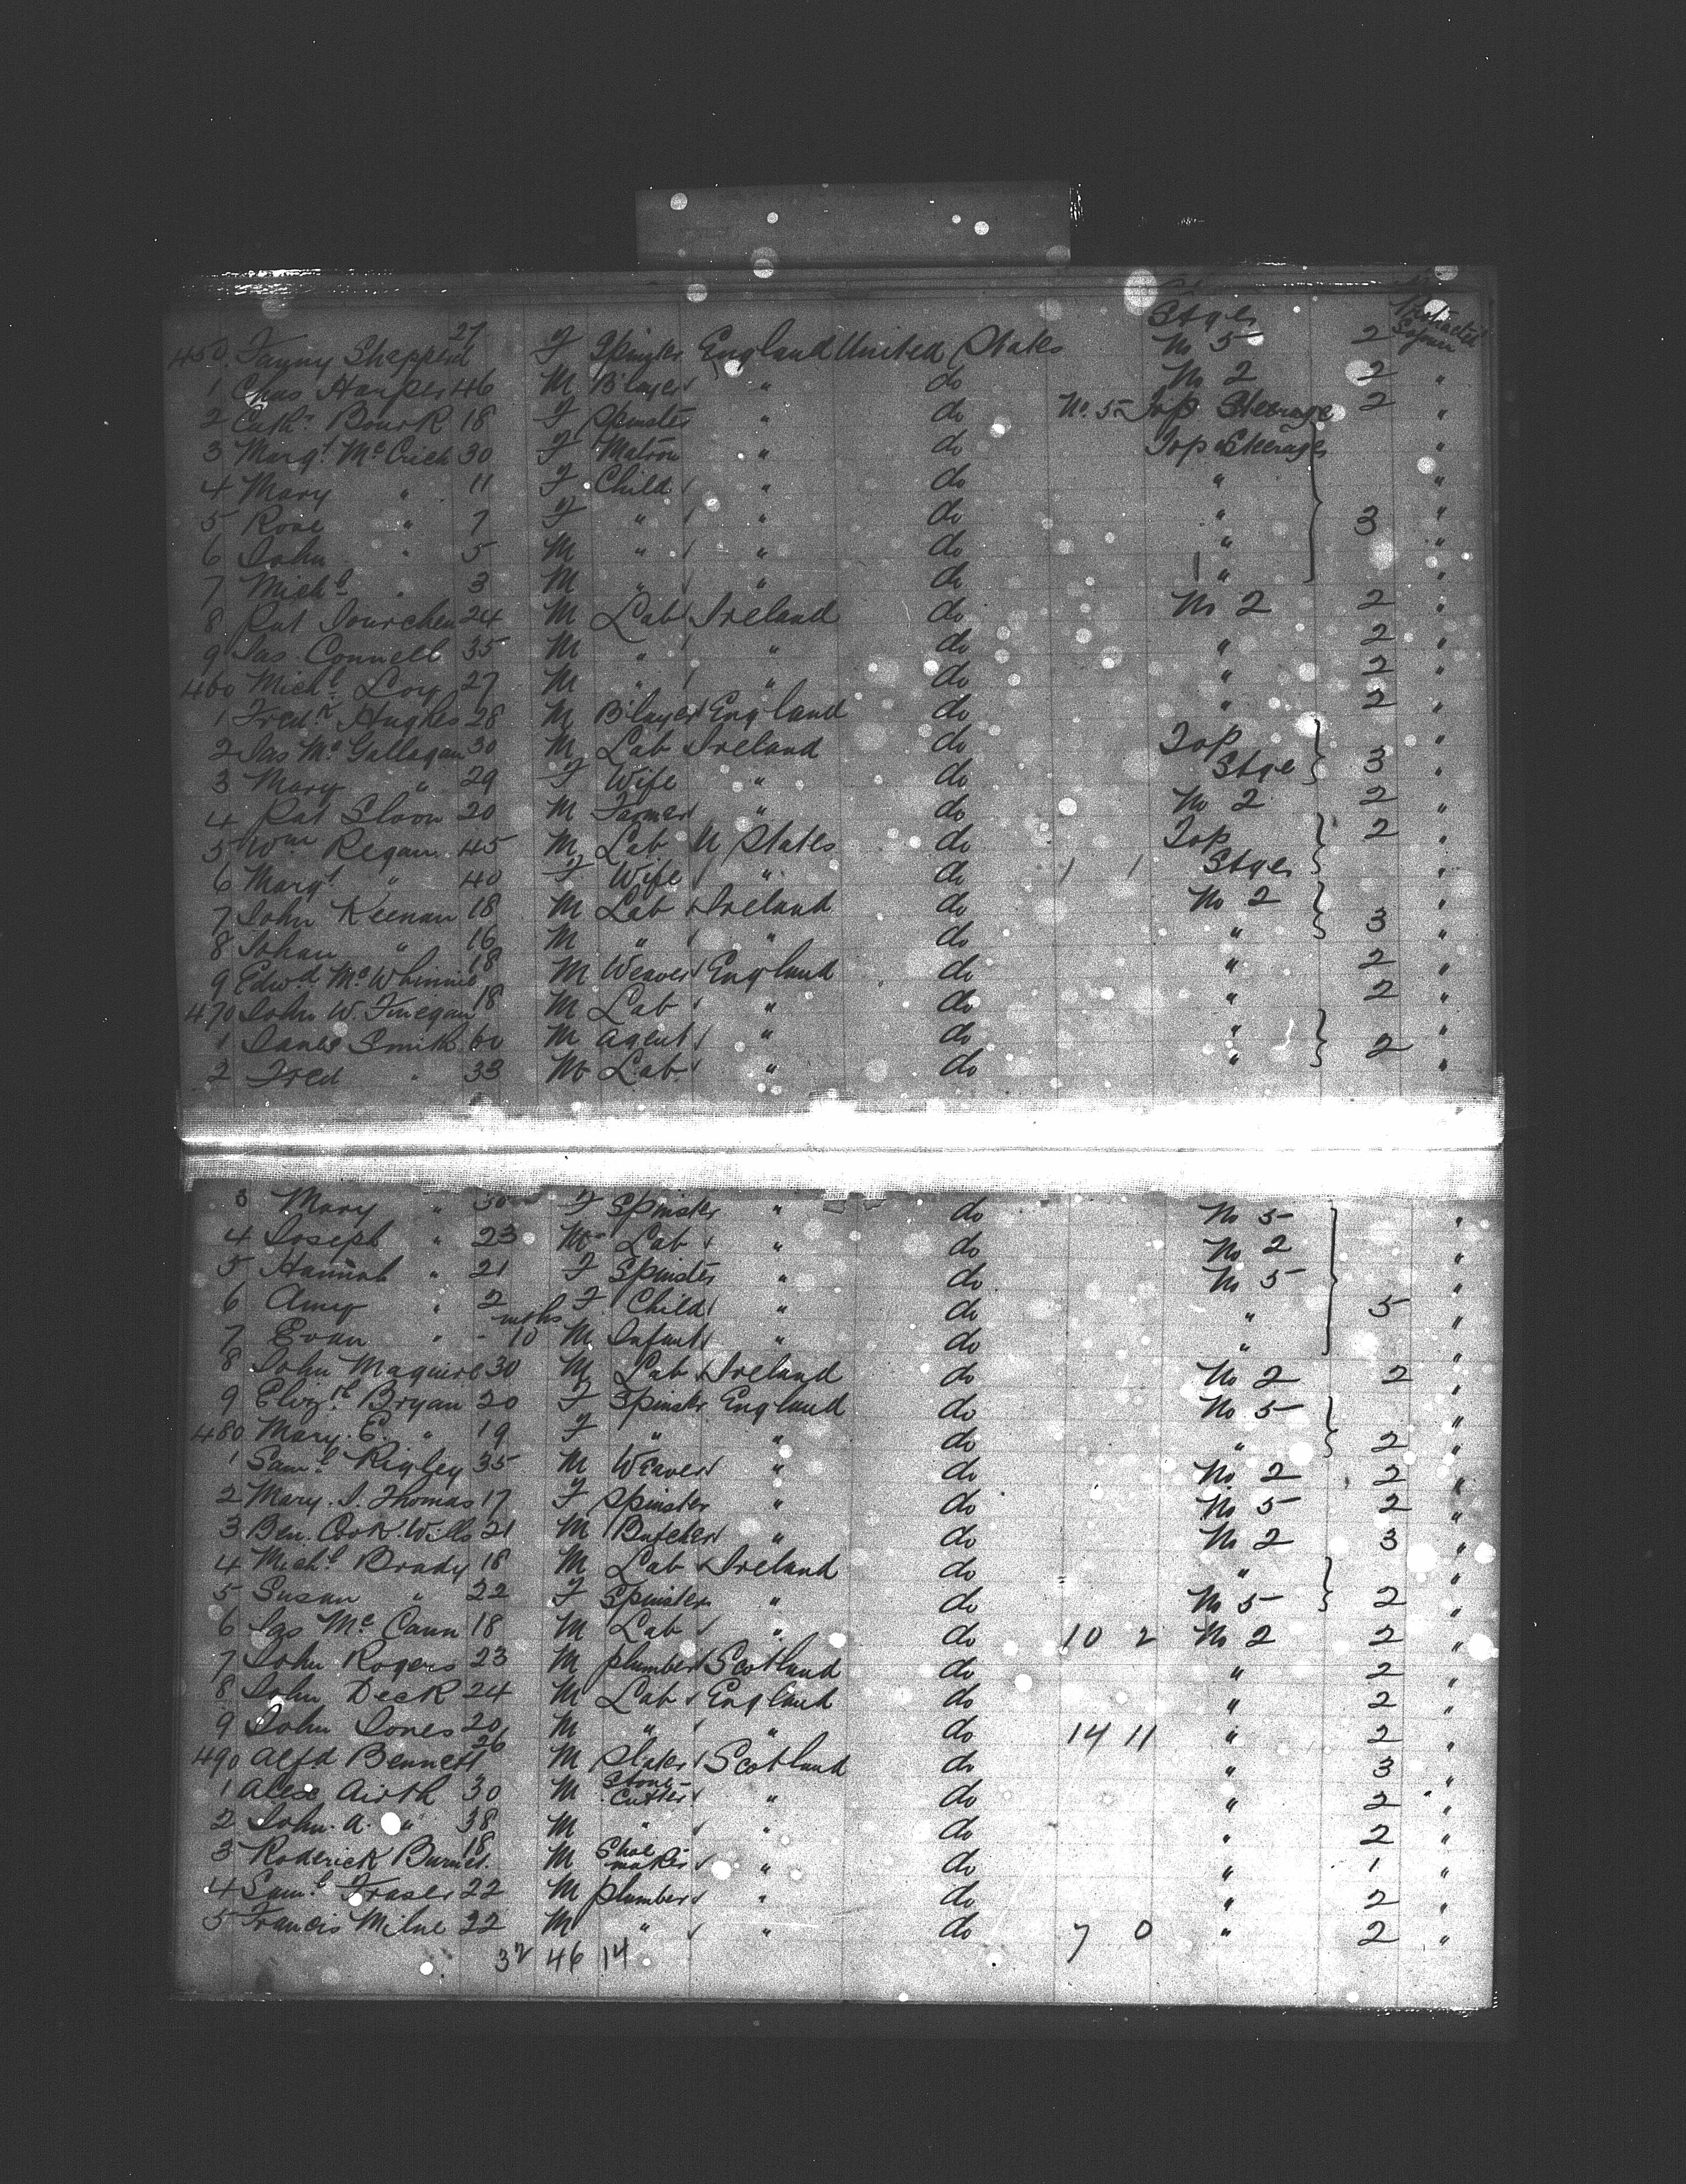 Stge
450 Fanny Shepperd 27 F Spinster England United States No 5 2 Protracted Sojourn
1 Chas Harper 46 M B'layer " do No 2 2 "
2 Cath. Bourk 18 F Spinster " do No. 5 Top Steerage 2 "
3 Margt. McCrich 30 F Matron " do Top Steerage "
4 Mary " 11 F Child " do " "
5 Rose " 7 F " " do " 3 "
6 John " 5 M " " do " "
7 Michl " 3 M " " do " "
8 Pat 24 M Lab Ireland do No 2 2 "
9 Jas Connell 35 M " " do " 2 "
460 Michl. Loy 27 M " " do " 2 "
1 Fredk Hughes 28 M B'layer England do " 2 "
2 Jas Mc Gallagan 30 M Lab Ireland do Top "
3 Mary " 29 F Wife " do Stge 3 "
4 Pat Sloon 20 M Farmer " do No 2 2 "
5 Wm Regan 45 M Lab U States do Top 2 "
6 Margt " 40 F Wife " do 1 1 Stge "
7 John Keenan 18 M Lab Ireland do No 2 "
8 Johan " 16 M " " do " 3 "
9 Edwd. McWhinnie 18 M Weaver England do " 2 "
470 John W. Finegan 18 M Lab " do " 2 "
1 James Smith 60 M Agent " do " "
2 Fred " 33 M Lab " do " 2 "
3 Mary " 30 F Spinster " do No 5 "
4 Joseph " 23 M Lab " do No 2 "
5 Hannah " 21 F Spinster " do No 5 "
6 Amy " 2 F Child " do " 5 "
7 Evan " - mths 10 M Infant " do " "
8 John Maguire 30 M Lab Ireland do No 2 2 "
9 Elizth Bryan 20 F Spinster England do No 5 "
480 Mary E. " 19 F " " do " 2 "
1 Saml. Rigley 35 M Weaver " do No 2 2 "
2 Mary J. Thomas 17 F Spinster " do No 5 2 "
3 Ben. Cook Wills 21 M Butcher " do No 2 3 "
4 Michl Brady 18 M Lab Ireland do " "
5 Susan " 22 F Spinster " do No 5 2 "
6 Jas McCann 18 M Lab " do 10 2 No 2 2 "
7 John Rogers 23 M Plumber Scotland do " 2 "
8 John Deck 24 M Lab England do " 2 "
9 John Jones 20 M " " do 14 11 " 2 "
490 Alfd Bennett 26 M Slater Scotland do " 3 "
1 Alex Airth 30 M Stone-Cutter " do " 2 "
2 John. A. " 38 M " " do " 2 "
3 Roderick Burnet 18 M Shoe-maker " do " 1 "
4 Saml Fraser 22 M Plumber " do " 2 "
5 Francis Milne 22 M " " do 7 0 " 2 "
32 46 14